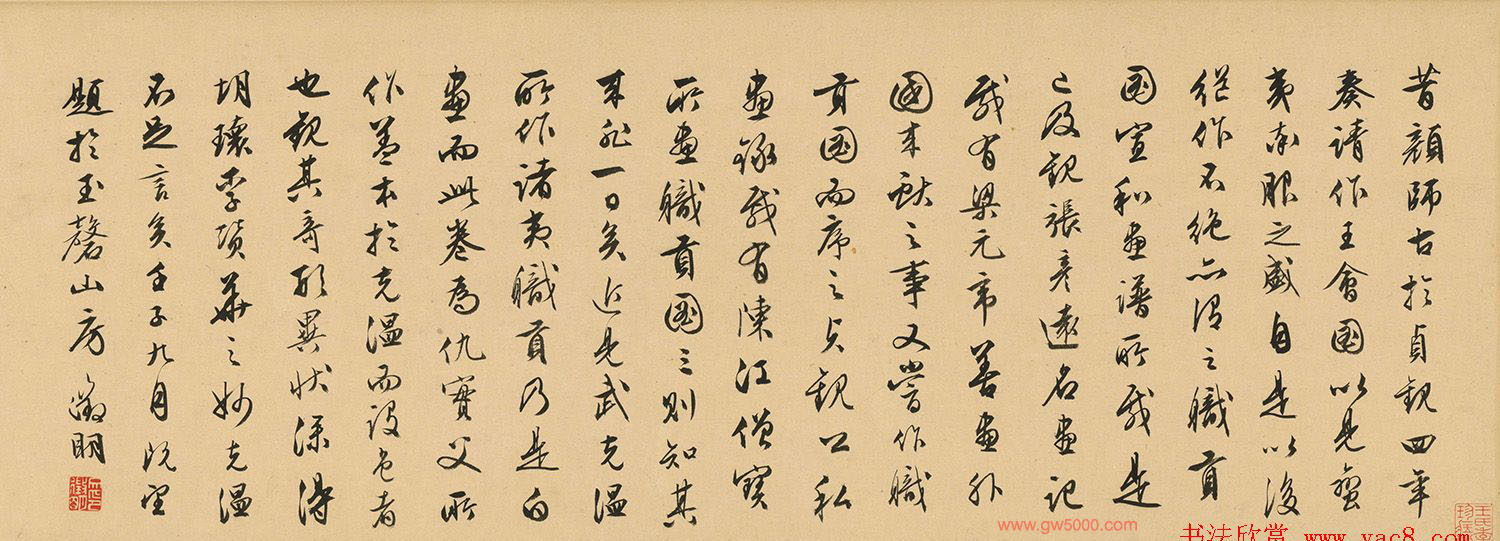 昔顔師古於貞觀四年
奏請作王會國以見蠻
夷率服之盛自是以後
繼作不絕亦謂之職貢
國宣和畫譜所載是
已及觀張彥遠名畫記
載有梁元帝善畫外
國來獻之事又嘗作職
貢國而序之貞觀公私
畫錄載有陳江僧寶
所畫職貢國三則知其
來非一日矣近見武克溫
所作諸夷職貢乃是白
畫而此卷為仇實父所
作葢本於克溫而設色者
也觀其奇形異狀深得
胡瓌李贊華之妙克溫
不足言矣壬子九月既望
題於玉磬山房徵明
www.gw5000.com
书法欣赏 www.yac8.com